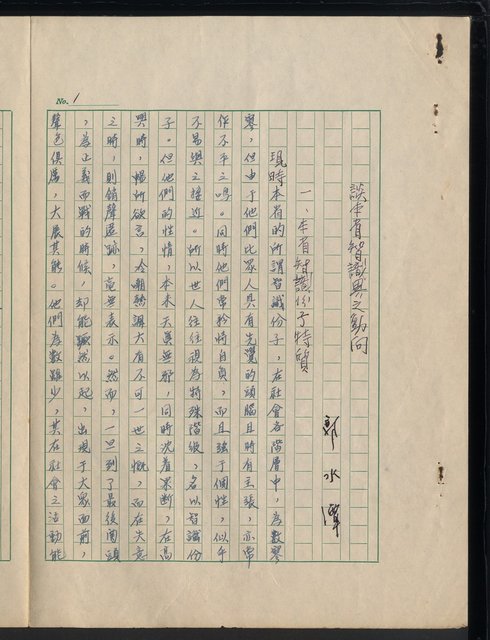 No. 1
談本省智識界之動向
鄭水潭
一、本省智識份子特質
現時本省的所謂智識份子，在社會各階層中，為數寥
寥，但由于他們比眾人具有先覺的頭腦且時有主張，亦常
作不平之鳴。同時他們常矜持自負，而且強于個性，似乎
不易與之接近。所以世人往往視為特殊階級，名以智識份
子。但他們的性情，本來天真無邪，同時沈着果斷，在高
興時，暢所欲言，冷嘲熱諷大有不可一世之慨，而在失意
之時，則銷聲匿跡，竟無表示。然而，一旦到了最後関頭
，為正義而戰的時候，却能飄然以起，出現于大眾面前，
聲色俱厲，大展其能。他們為數雖少，其在社會之活動能